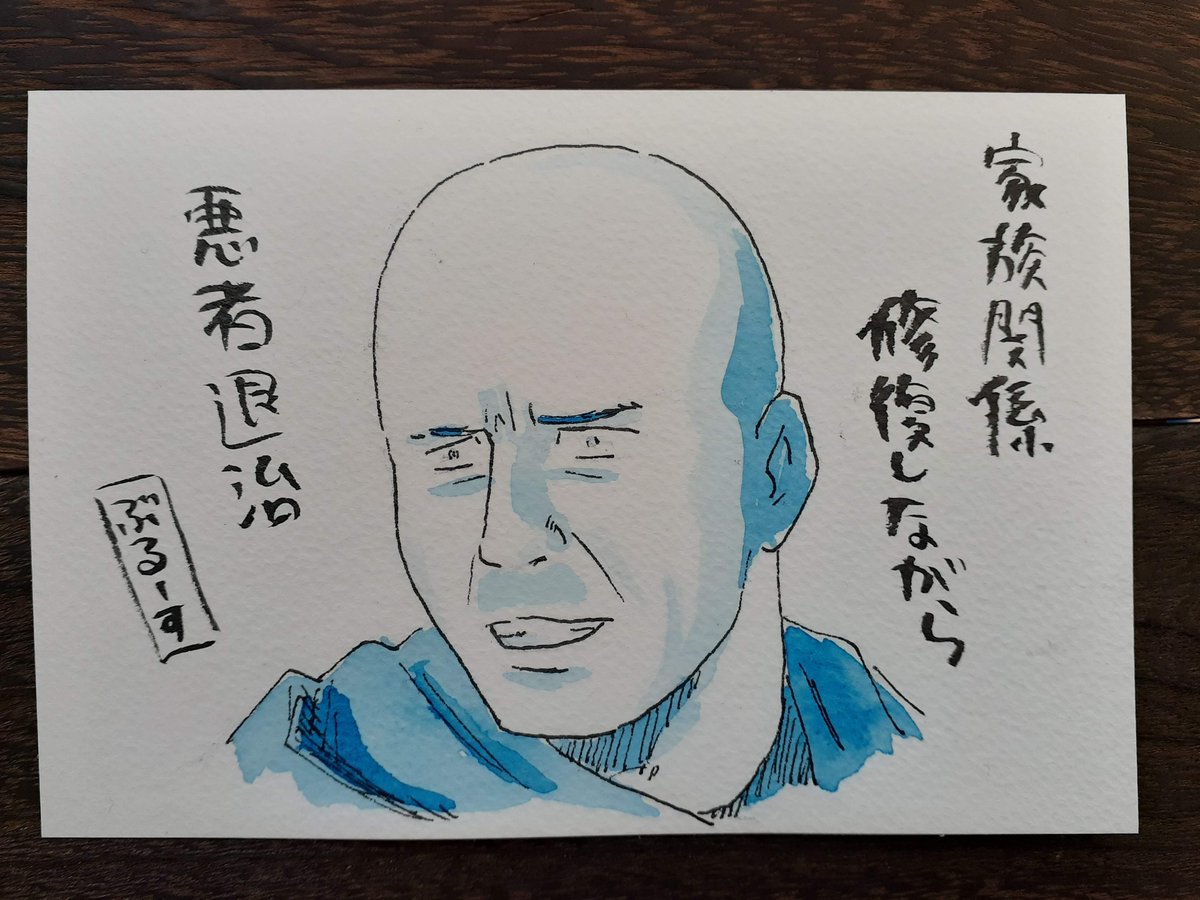 家族関係
修復しながら
悪者退治
ぶるーす